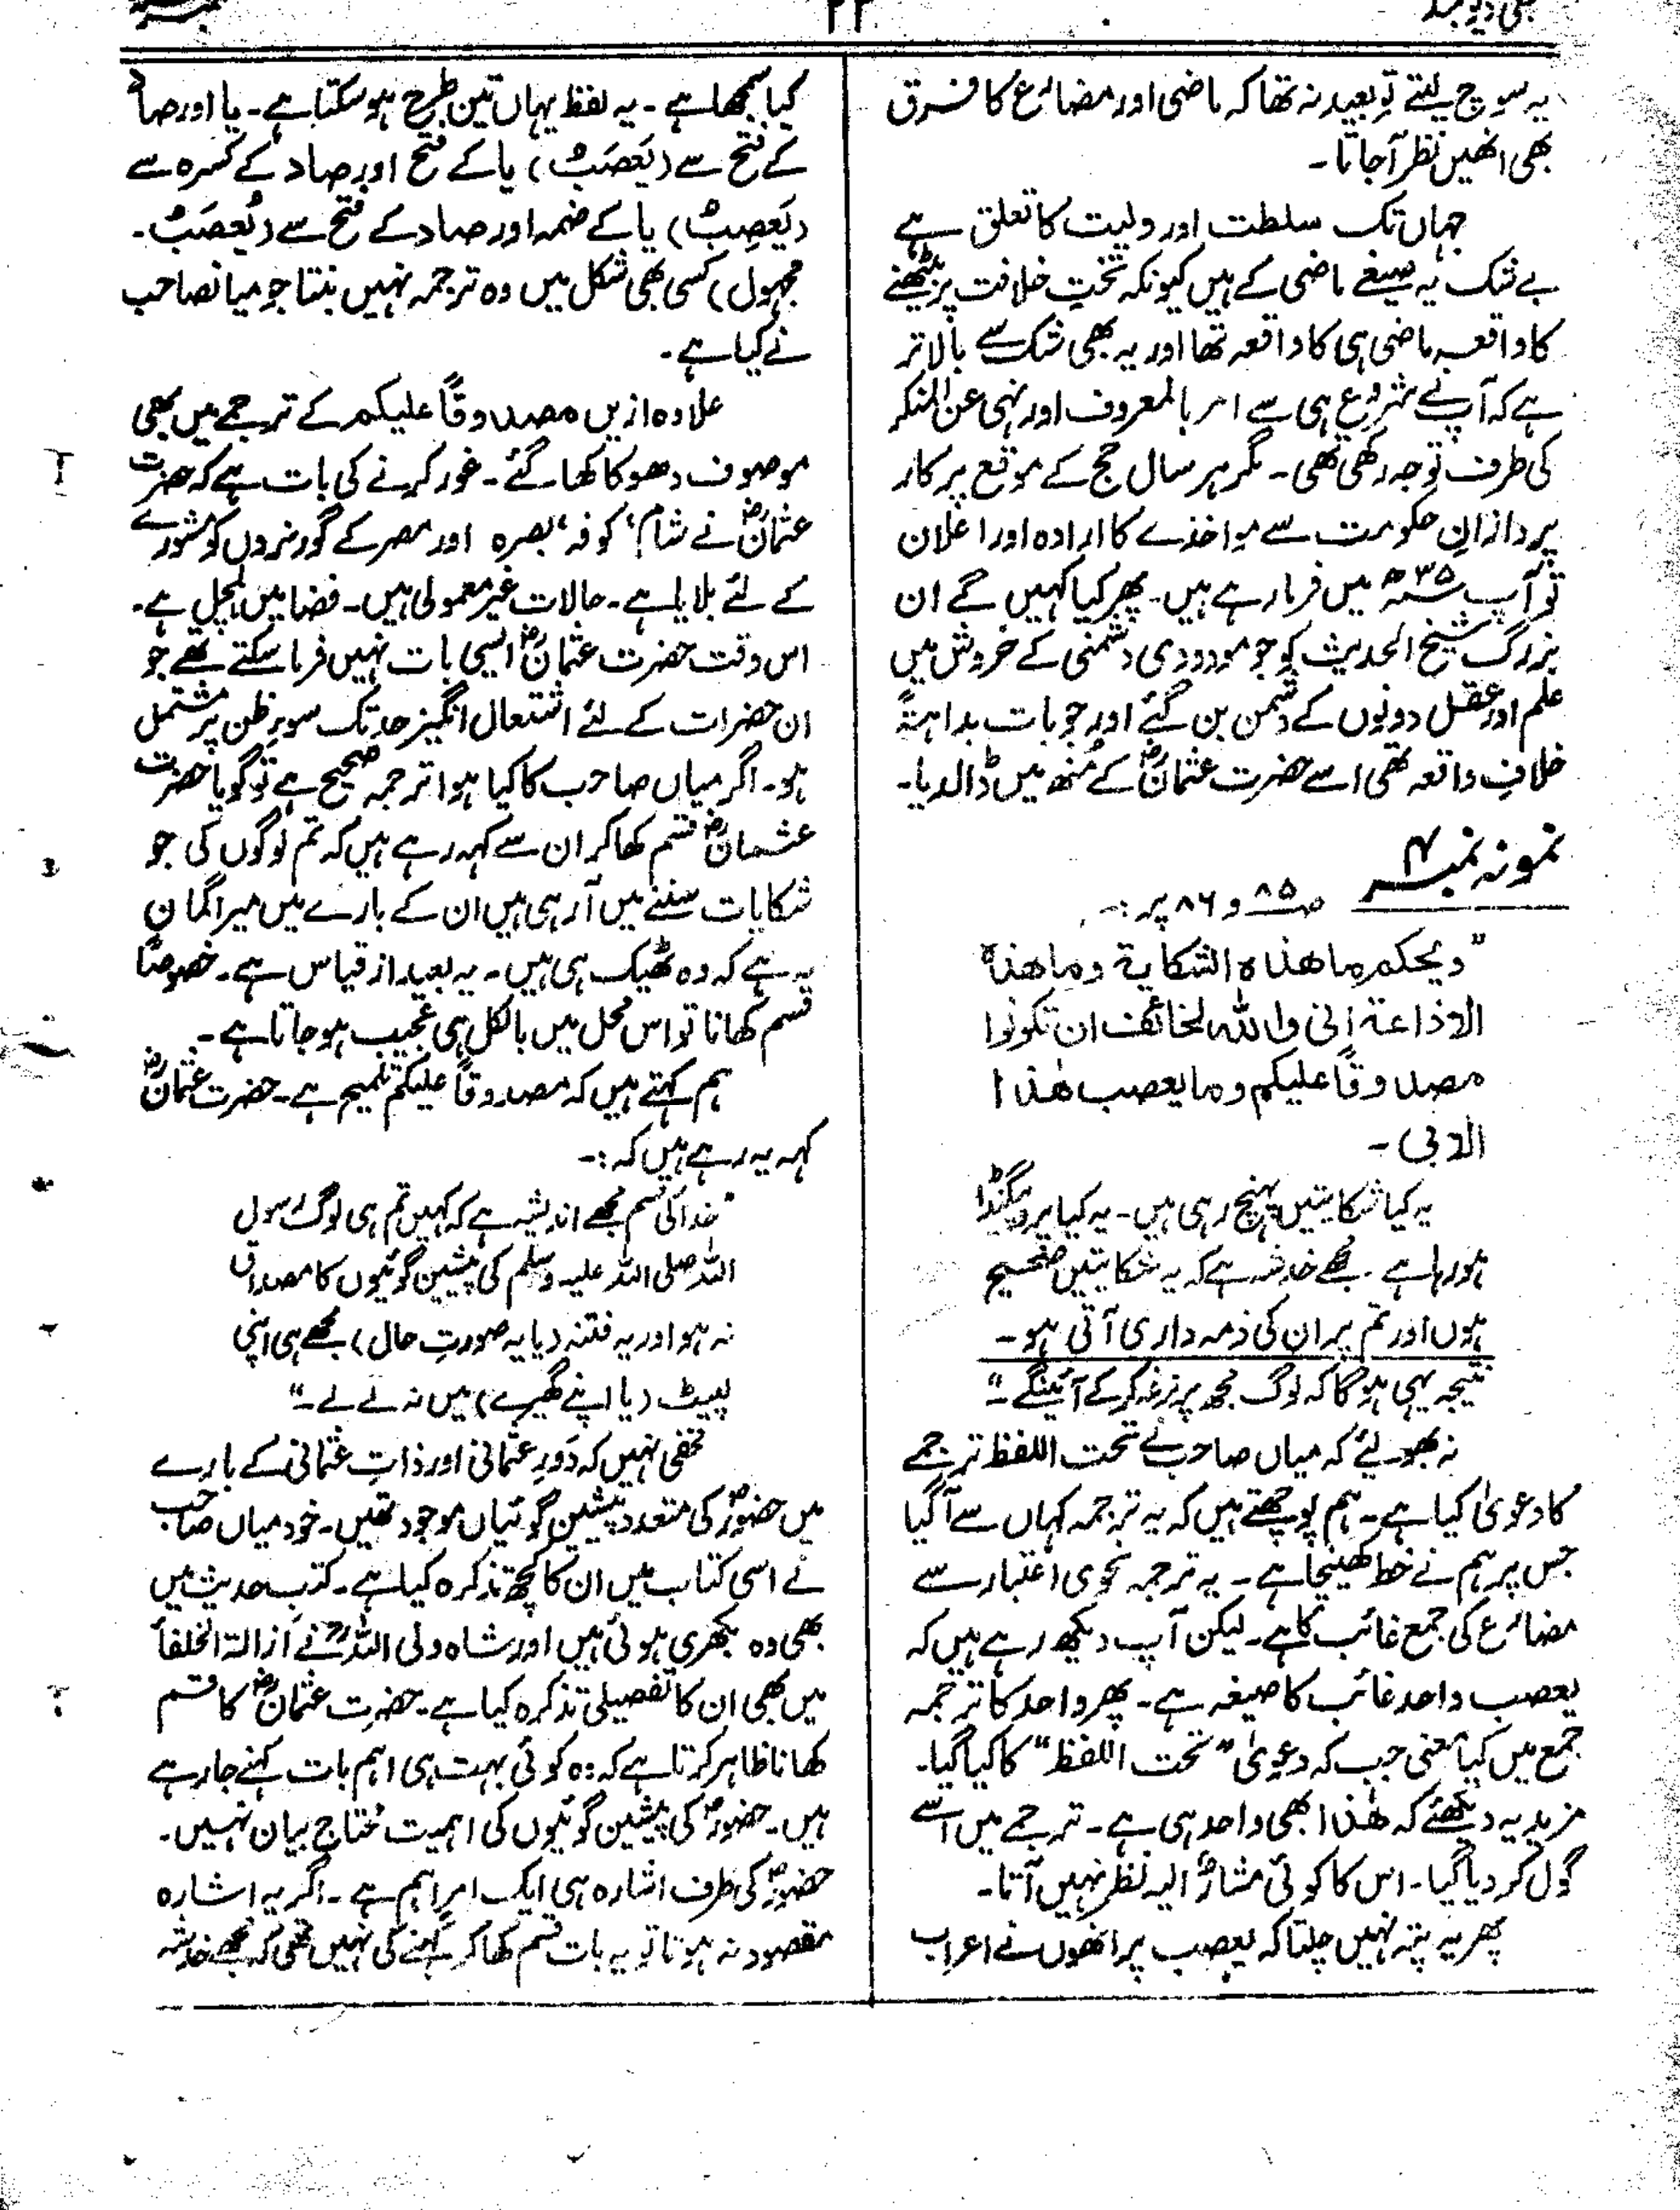 ۲۲
یہ سوچ لیتے تو بعید نہ تھا کہ ماضی اور مضارع کا فرق
بھی انھیں نظر آجاتا۔
جہاں تک سلطت اور ولیت کا تعلق ہے
بے شک یہ صیغے ماضی کے ہیں کیونکہ تختِ خلافت پر بیٹھنے
کا واقعہ ماضی ہی کا واقعہ تھا اور یہ بھی شک سے بالاتر
ہے کہ آپ نے شروع ہی سے امر بالمعروف اور نہی عن المنکر
کی طرف توجہ رکھی تھی۔ مگر ہر سال حج کے موقع پر کار
پردازانِ حکومت سے مواخذے کا ارادہ اور اعلان
تو آپ ۳۵ھ میں فرما رہے ہیں۔ پھر کیا کہیں گے ان
بزرگ شیخ الحدیث کو جو مودودی دشمنی کے خروش میں
علم اور عقل دونوں کے دشمن بن گئے اور جو بات بداہتۃً
خلافِ واقعہ تھی اسے حضرت عثمانؓ کے منھ میں ڈالدیا۔
نمونہ نمبر ۴
ص ۸۵ و ۸۶ پر :۔
"ویحکم ما ھذہ الشکایة وما ھذہ
الاذاعة انی واللہ لخائف ان تکونوا
مصدوقاً علیکم وما یعصب ھٰذا
الا بی۔
یہ کیا شکایتیں پہنچ رہی ہیں۔ یہ کیا پروپیگنڈا
ہو رہا ہے۔ مجھے خدشہ ہے کہ یہ شکایتیں صحیح
ہوں اور تم پر ان کی ذمہ داری آتی ہو۔
نتیجہ یہی ہوگا کہ لوگ مجھ پر نرغہ کر کے آئینگے۔"
نہ بھولئے کہ میاں صاحب نے تحت اللفظ ترجمے
کا دعویٰ کیا ہے۔ ہم پوچھتے ہیں کہ یہ ترجمہ کہاں سے آگیا
جس پر ہم نے خط کھینچا ہے۔ یہ ترجمہ نحوی اعتبار سے
مضارع کی جمع غائب کا ہے۔ لیکن آپ دیکھ رہے ہیں کہ
یعصب واحد غائب کا صیغہ ہے۔ پھر واحد کا ترجمہ
جمع میں کیا معنی جب کہ دعویٰ "تحت اللفظ" کا کیا گیا۔
مزید یہ دیکھئے کہ ھٰذا بھی واحد ہی ہے۔ ترجمے میں اسے
گول کر دیا گیا۔ اس کا کوئی مشارٌ الیہ نظر نہیں آتا۔
پھر یہ پتہ نہیں چلتا کہ یعصب پر انھوں نے اعراب
کیا سمجھا ہے۔ یہ لفظ یہاں تین طرح ہو سکتا ہے۔ یا اور صاد
کے فتح سے (یَعصَبُ) یا کے فتح اور صاد کے کسرہ سے
(یَعصِبُ) یا کے ضمہ اور صاد کے فتح سے (یُعصَبُ۔
مجہول) کسی بھی شکل میں وہ ترجمہ نہیں بنتا جو میانصاحب
نے کیا ہے۔
علاوہ ازیں مصدوقاً علیکم کے ترجمے میں بھی
موصوف دھوکا کھا گئے۔ غور کرنے کی بات ہے کہ حضرت
عثمانؓ نے شام، کوفہ، بصرہ اور مصر کے گورنروں کو مشورے
کے لئے بلایا ہے۔ حالات غیر معمولی ہیں۔ فضا میں ہلچل ہے۔
اس وقت حضرت عثمانؓ ایسی بات نہیں فرما سکتے تھے جو
ان حضرات کے لئے اشتعال انگیز حد تک سوءِ ظن پر مشتمل
ہو۔ اگر میاں صاحب کا کیا ہوا ترجمہ صحیح ہے تو گویا حضرت
عثمانؓ قسم کھا کر ان سے کہہ رہے ہیں کہ تم لوگوں کی جو
شکایات سننے میں آرہی ہیں ان کے بارے میں میرا گمان
یہ ہے کہ وہ ٹھیک ہی ہیں۔ یہ بعید از قیاس ہے۔ خصوصًا
قسم کھانا تو اس محل میں بالکل ہی عجیب ہو جاتا ہے۔
ہم کہتے ہیں کہ مصدوقاً علیکم تلمیح ہے۔ حضرت عثمانؓ
کہہ یہ رہے ہیں کہ :۔
"خدا کی قسم مجھے اندیشہ ہے کہ کہیں تم ہی لوگ رسول
اللہ صلی اللہ علیہ وسلم کی پیشین گوئیوں کا مصداق
نہ ہو اور یہ فتنہ (یا یہ صورتِ حال) مجھے ہی اپنی
لپیٹ (یا اپنے گھیرے) میں نہ لے لے۔"
مخفی نہیں کہ دَورِ عثمانی اور ذاتِ عثمانی کے بارے
میں حضورؐ کی متعدد پیشین گوئیاں موجود تھیں۔ خود میاں صاحب
نے اسی کتاب میں ان کا کچھ تذکرہ کیا ہے۔ کتب حدیث میں
بھی وہ بکھری ہوئی ہیں اور شاہ ولی اللہؒ نے ازالۃ الخلفاً
میں بھی ان کا تفصیلی تذکرہ کیا ہے۔ حضرت عثمانؓ کا قسم
کھانا ظاہر کرتا ہے کہ وہ کوئی بہت ہی اہم بات کہنے جا رہے
ہیں۔ حضورؐ کی پیشین گوئیوں کی اہمیت محتاجِ بیان نہیں۔
حضورؐ کی طرف اشارہ ہی ایک امرِ اہم ہے۔ اگر یہ اشارہ
مقصود نہ ہوتا تو یہ بات قسم کھا کر کہنے کی نہیں تھی کہ مجھے خدشہ